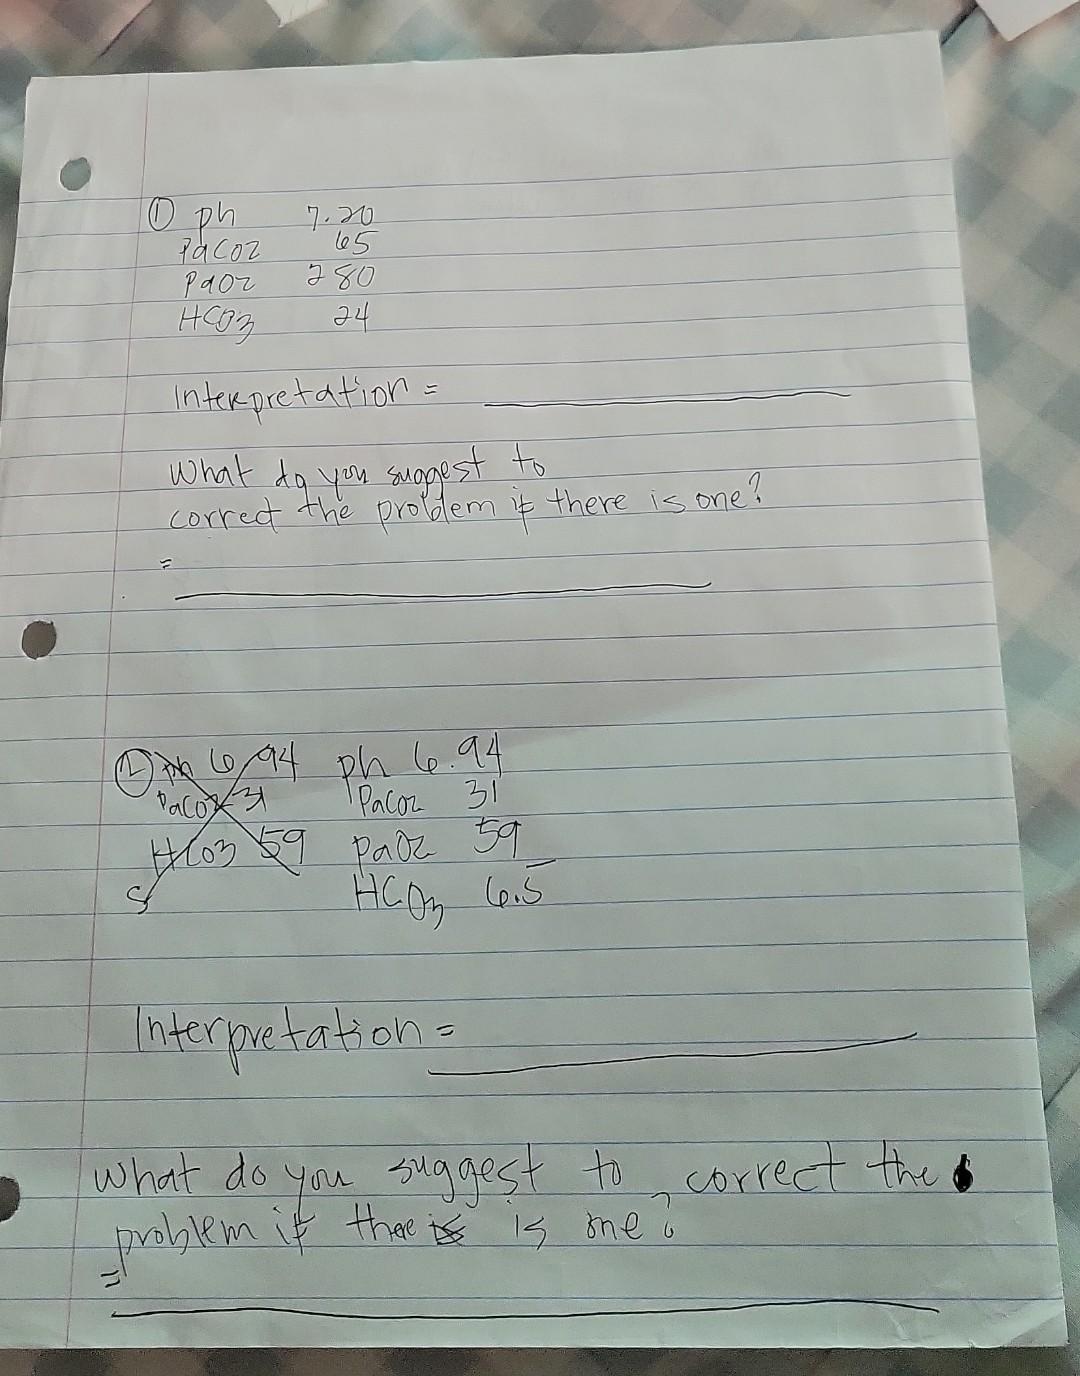 ① ph 7.20
PaCO2 65
PaO2 280
HCO3 24
Interpretation =
What do you suggest to
correct the problem if there is one?
=
② ph 6.94 ph 6.94
PaCO2 31 PaCO2 31
HCO3 59 PaO2 59
S HCO3 6.5
Interpretation =
What do you suggest to correct the
problem if there is is one?
=